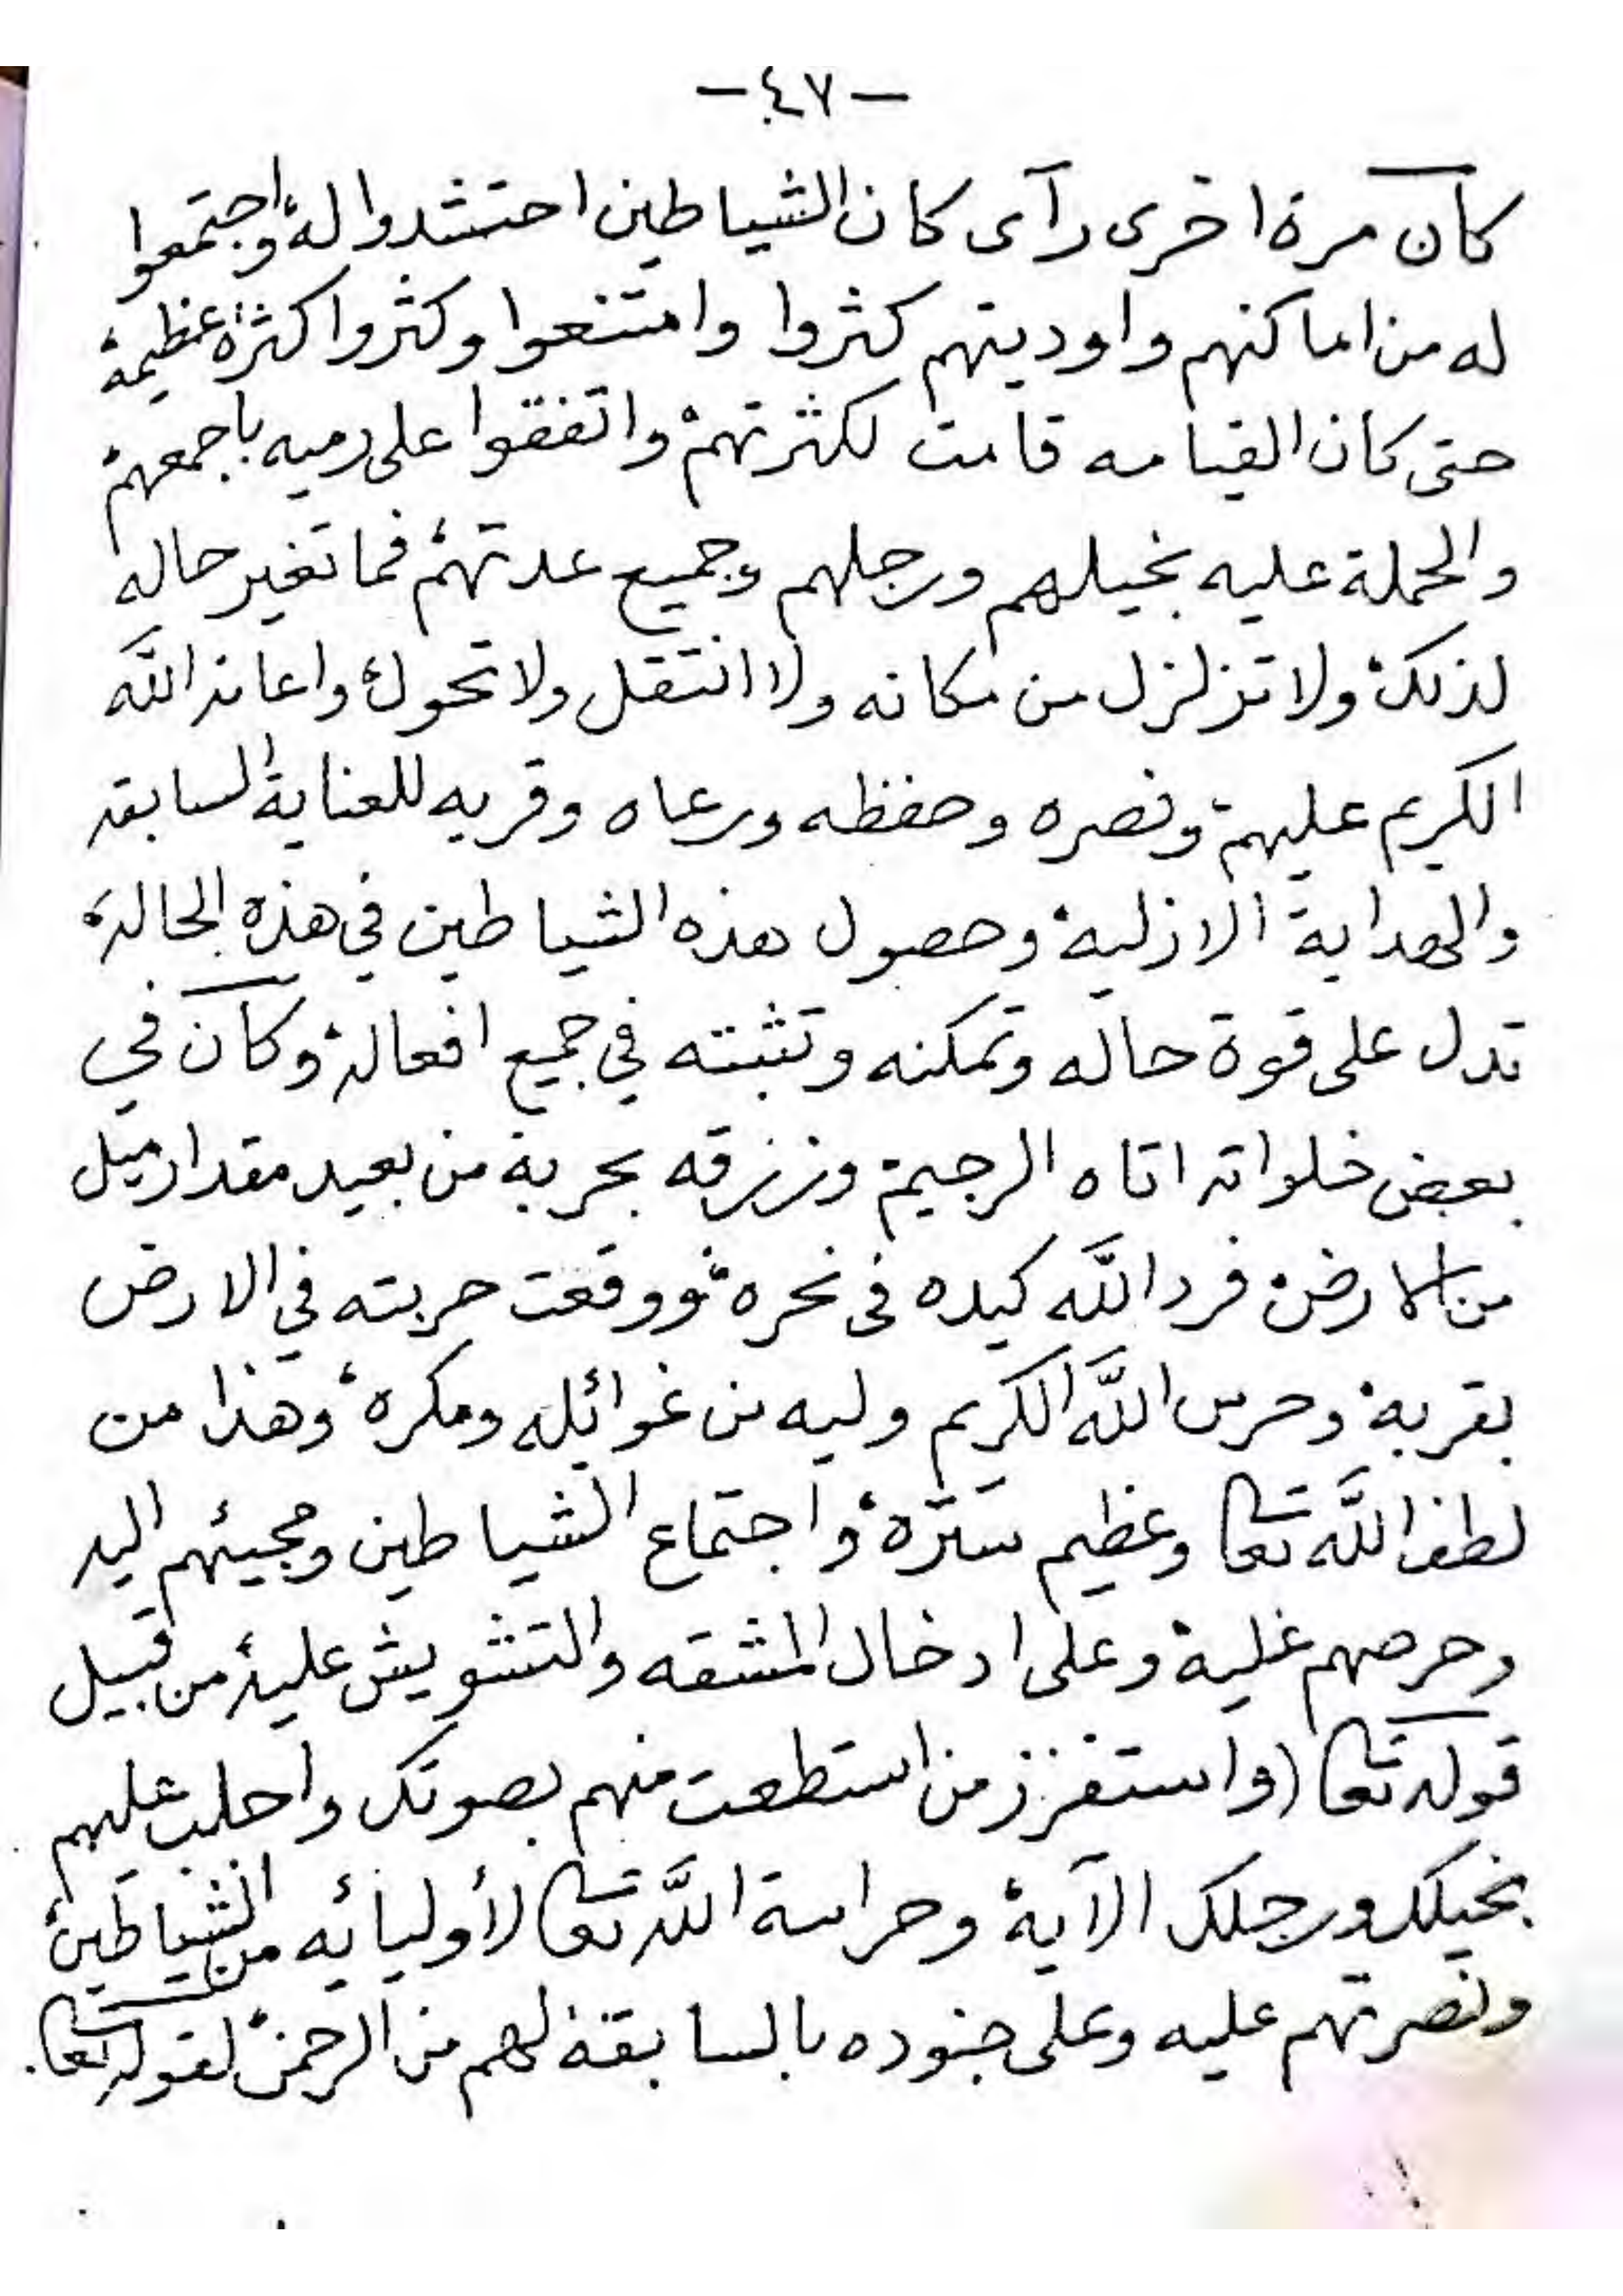 -٤٧-
كان مرة اخرى رآى كان الشياطين احتشدوا له واجتمعوا
له من اماكنهم واوديتهم كثروا وامتنعوا وكثروا كثرة عظيمة
حتى كان القيامه قامت لكثرتهم واتفقوا على رميه باجمعهم
والحملة عليه بخيلهم ورجلهم وجميع عدتهم فما تغير حاله
لذلك ولا تزلزل من مكانه ولا انتقل ولا تحول واعانه اللَّه
الكريم عليهم ونصره وحفظه ورعاه وقربه للعناية السابقه
والهداية الازلية وحصول هذه الشياطين في هذه الحالة
تدل على قوة حاله وتمكنه وتثبته في جميع افعاله وكان في
بعض خلواته اتاه الرجيم وزرقه بحربة من بعيد مقدار ميل
من الارض فرد اللَّه كيده فى نحره ووقعت حربته في الارض
بقربه وحرس اللَّه الكريم وليه من غوائله ومكره وهذا من
لطف اللَّه تعا وعظيم ستره واجتماع الشياطين ومجيئهم اليه
وحرصهم عليه وعلى ادخال المشقه والتشويش عليه من قبيل
قوله تعا (واستفزز من استطعت منهم بصوتك واجلب عليهم
بخيلك ورجلك الآية وحراسة اللَّه تعا لأوليائه من الشياطين
ونصرتهم عليه وعلى جنوده بالسابقة لهم من الرحمن لقوله تعا.